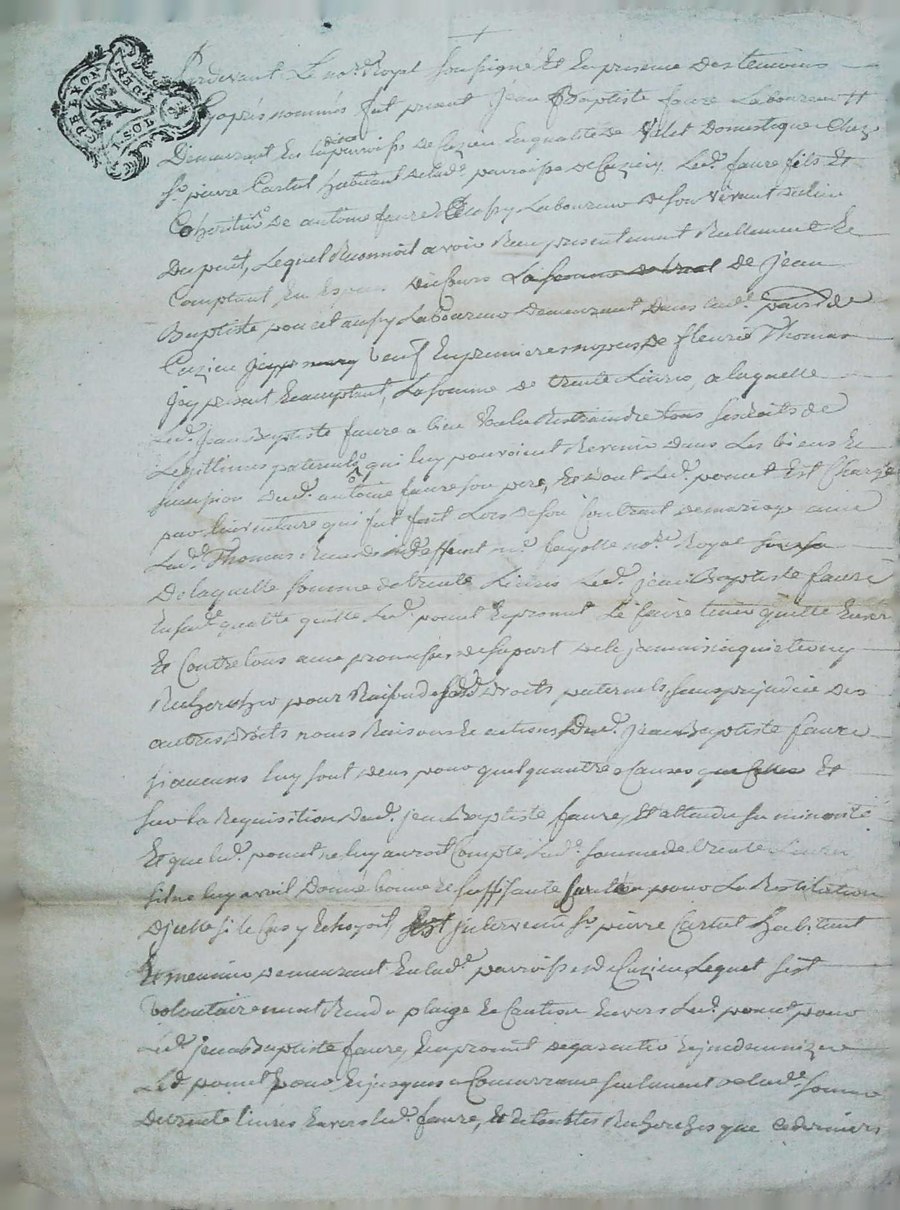 GEN. DE LYON
1. SOL
Pardevant Le no.re Royal soussigné Et En presence Des temoins
cy apres nommés fut present Jean Baptiste faure Laboureur
Demeurant En ladite parroisse de Cuzieu En qualité de Valet Domestique Chez
Sr. pierre Cartal habitant de lad.e parroisse de Cuzieu, Led. faure fils Et
Cohéritier De antoine faure Laboureur De son vivant dudit lieu
Du pont, Lequel Reconnoit avoir Receu presentement Reellement Et
Comptant En Especes du cours La somme de De Jean
Baptiste poncet aussy Laboureur Demeurant Dans lad.e parr.se de
Cuzieu veuf En premieres nopces de fleurie Thomas
Icy present Et acceptant, La somme de trente Livres, a laquelle
Led. Jean Baptiste faure a bien voulu Restraindre tous ses droits de
Legittimes paternels qui luy pouvoient Revenir Dans Les biens Et
succession dud. antoine faure son pere, Et dont Led. poncet Est Chargé
par linventaire qui fut fait Lors de son Contrat de mariage avec
Lad. Thomas Receu deffunt me. no.re Royal
De laquelle somme de trente Livres Led. Jean Baptiste faure
En sad.e qualité quitte Led. poncet Et promet Le faire tenir quitte Envers
Et Contre tous avec promesses de sa part de ne jamais inquieter ny
Rechercher pour Raison de sesd. Droits paternels, sans prejudice Des
autres Droits noms Raisons Et actions Dud. Jean Baptiste faure
si aucuns luy sont deus pour quelquautres Causes Et
sur la Requisition Dud. Jean Baptiste faure, Et attendu sa minorité
Et que Led. poncet ne luy auroit Compté Lad.e somme de trente Livres
sil ne luy avoit Donné bonne Et suffisante Caution pour La Restitution
Dicelle si le Cas y Echeoit, Est intervenu Sr. pierre Cartal habitant
Et Demeurant En lad.e parroisse de Cuzieu Lequel sest
volontairement Rendu plaige Et Caution Envers Led. poncet pour
Led. Jean Baptiste faure, Et promet de garantir Et indemnizer
Led. poncet jusques a Concurrance seulement de lad.e somme
De trente livres Envers led. faure, Et de toutes Recherches que ce dernier